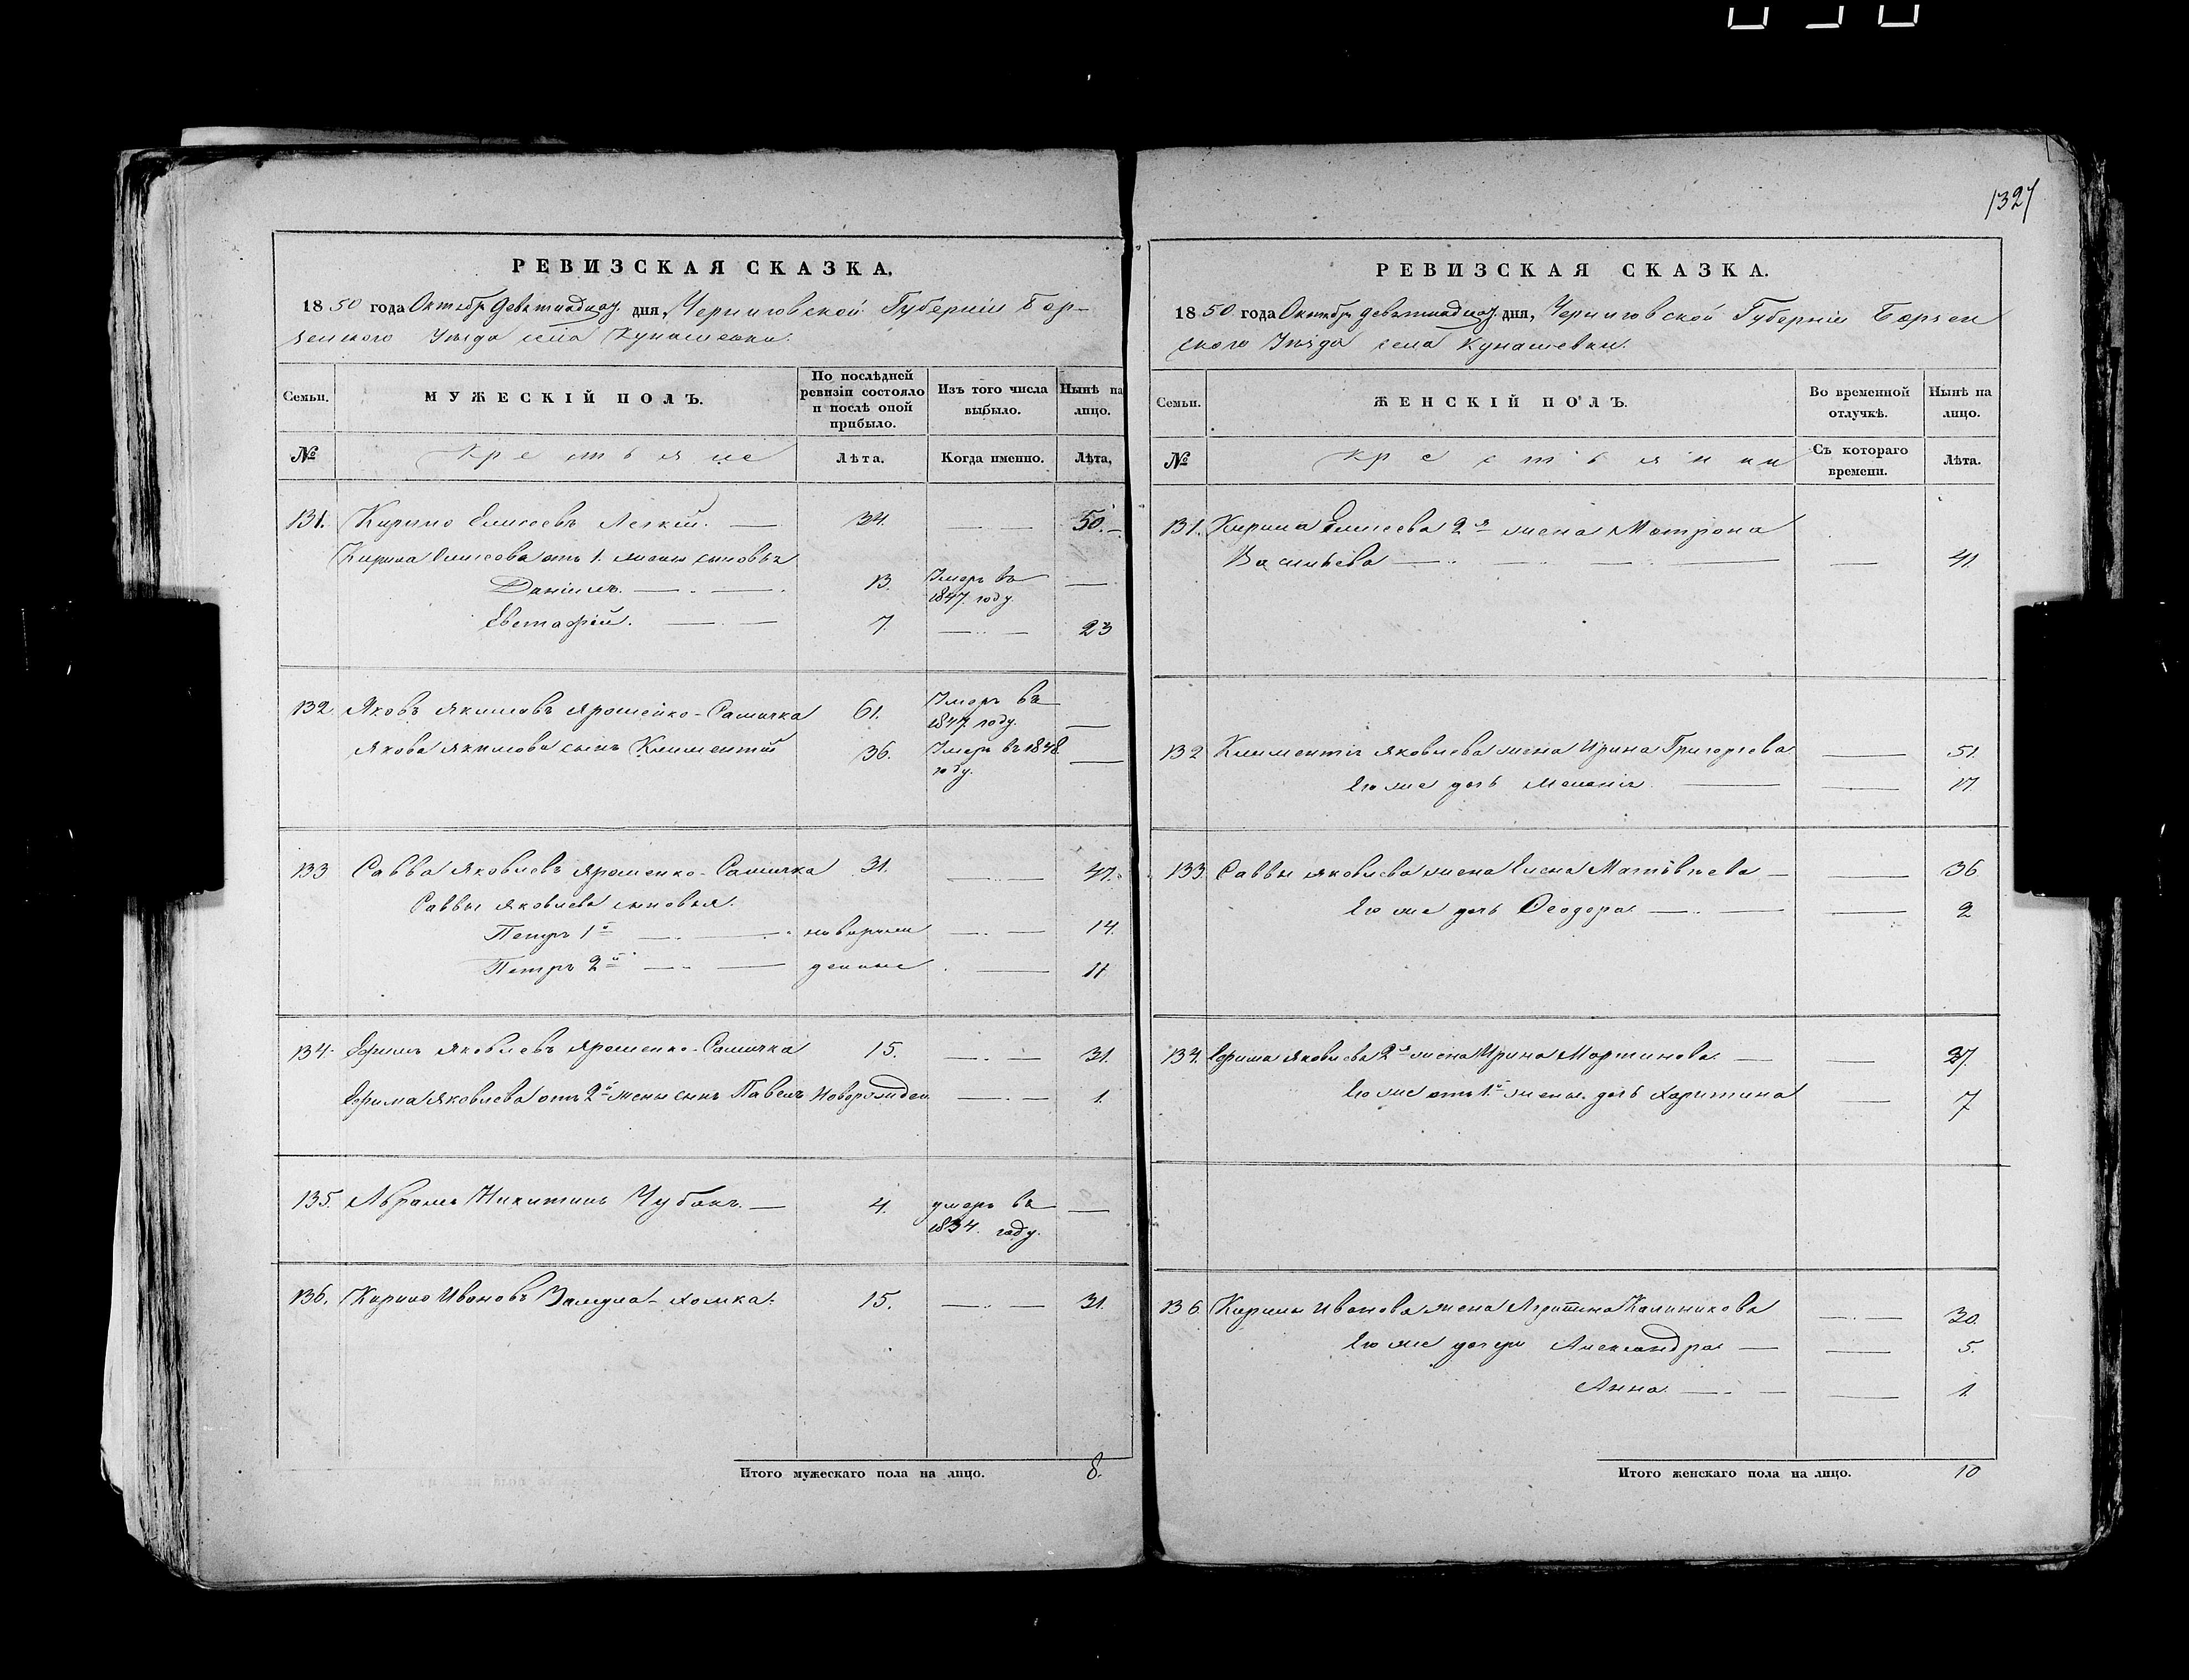 1327
РЕВИЗСКАЯ СКАЗКА.
1850 года Октябр. девятнадцат. дня, Черниговской Губерніи Бор-
зенского Уѣзда села Кунашевки.
Семьи.
МУЖЕСКІЙ ПОЛЪ.
По послѣдней ревизіи состояло и послѣ оной прибыло.
Изъ того числа выбыло.
Нынѣ на лицо.
№ Крестьяне Лѣта. Когда именно. Лѣта.
131. Кирило Елисеевъ Легкій. — 34. — 50.
Кирила Елисеева отъ 1. жены сыновья
Даніилъ. — 13. Умеръ въ 1847. году. —
Евстафій. — 7. — 23
132 Яковъ Якимовъ Ярошенко-Самечка 61. Умеръ въ 1847. году. —
Якова Якимова сынъ Климентій 36. Умеръ въ 1848 году. —
133 Савва Яковлевъ Ярошенко-Самечка 31. — 47.
Саввы Яковлева сыновья.
Петръ 1й — новорож — 14.
Петръ 2й — денные — 11
134. Ефимъ Яковлевъ Ярошенко-Самечка 15. — 31.
Ефима Яковлева отъ 2й жены сынъ Павелъ Новорожден. — 1.
135. Абрамъ Никитинъ Чубакъ. — 4. умеръ въ 1834. году. —
136. Кирило Ивановъ 15. — 31.
Итого мужескаго пола на лицо. 8.
РЕВИЗСКАЯ СКАЗКА.
1850 года Октябр. девятнадцат. дня, Черниговской Губерніи Борзен
ского Уѣзда села Кунашевки.
Семьи.
ЖЕНСКІЙ ПОЛЪ.
Во временной отлучкѣ.
Нынѣ на лицо.
№ Крестьянки Съ котораго времени. Лѣта.
131. Кирила Елисеева 2я жена Матрона
Васильева — — 41
132 Климентія Яковлева жена Ирина Григорьева — 51.
Его же дочь Меланія. — — 17.
133. Саввы Яковлева жена Елена Матвѣева — — 36
Его же дочь Ѳеодора — — 2
134. Ефима Яковлева 2я жена Ирина Мартинова. — — 37.
Его же отъ 1й жены дочь Харитина — 7
136 Кирилы Иванова жена Агрипина Калиникова — 30.
Его же дочери Александра — — 5.
Анна. — — 1.
Итого женскаго пола на лицо. 10